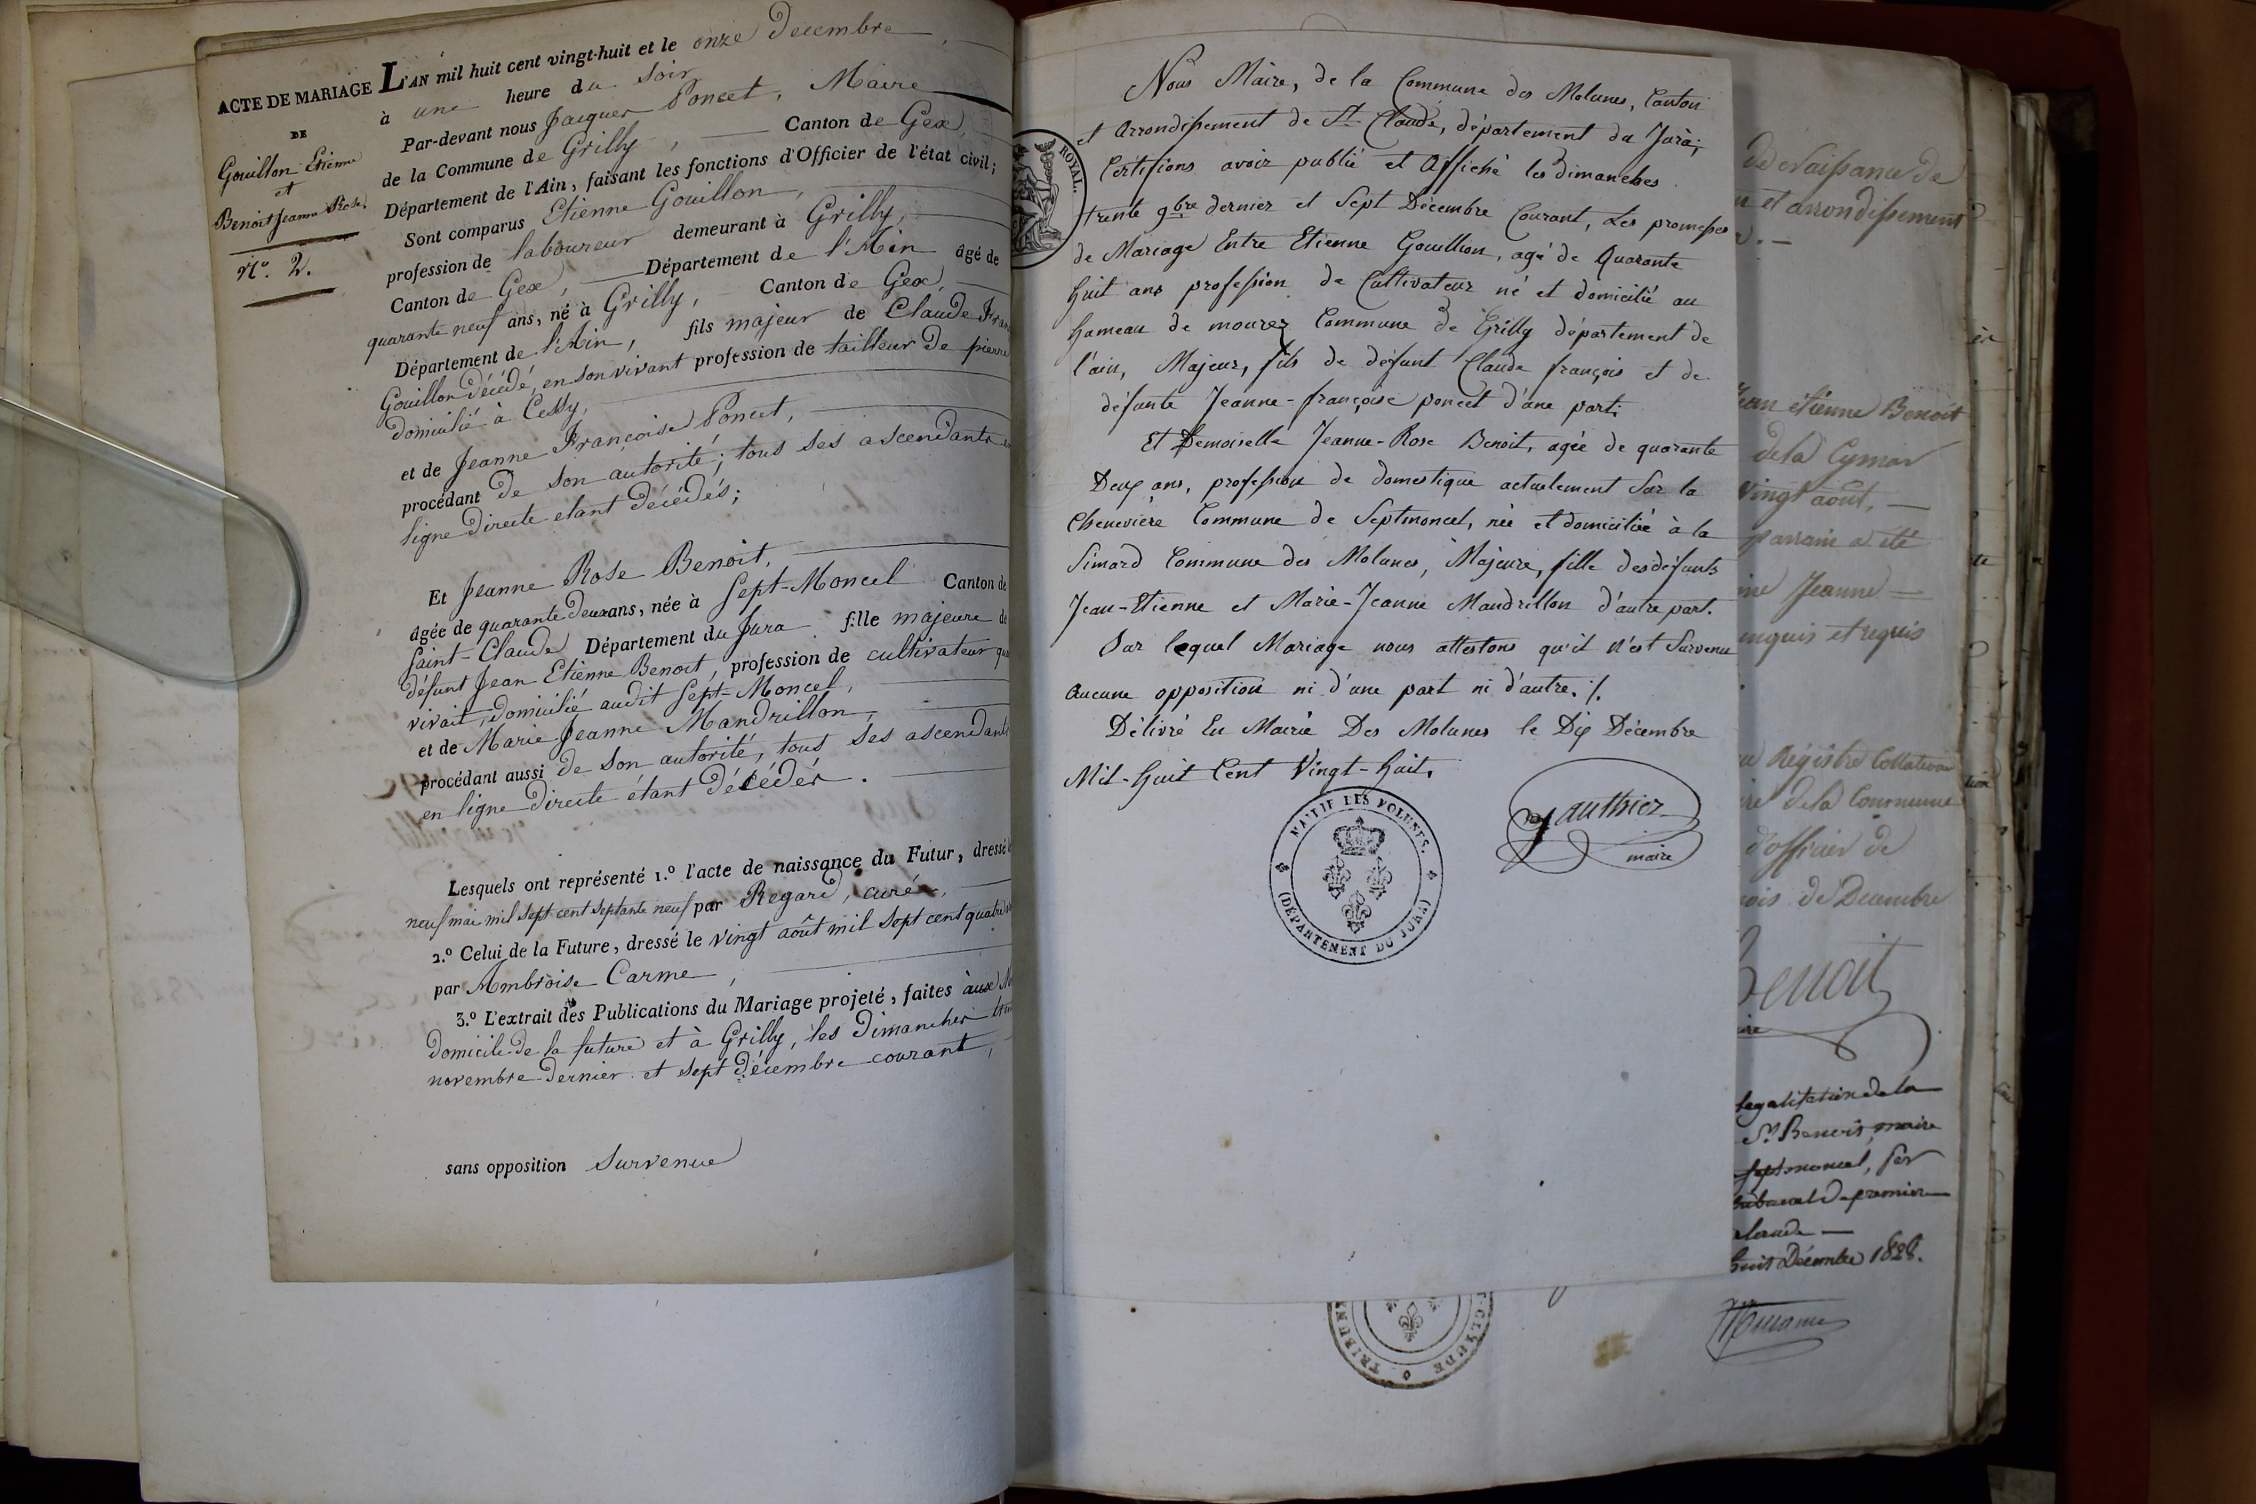 ACTE DE MARIAGE
DE
Gouillon Etienne
et
Benoit Jeanne Rose.
N.o 2.
L'AN mil huit cent vingt-huit et le onze Decembre
à une heure du soir
Par-devant nous Jacques Poncet, Maire
de la Commune de Grilly, Canton de Gex,
Département de l'Ain, faisant les fonctions d'Officier de l'état civil;
Sont comparus Etienne Gouillon,
profession de laboureur demeurant à Grilly,
Canton de Gex, Département de l'Ain âgé de
quarante neuf ans, né à Grilly, Canton de Gex,
Département de l'Ain, fils majeur de Claude
Gouillon décédé, en son vivant profession de tailleur de pierre
domicilié à Cessy,
et de Jeanne Françoise Poncet,
procédant de son autorité; tous ses ascendants en
ligne directe etant décédés;
Et Jeanne Rose Benoit,
âgée de quarante deux ans, née à Sept-Moncel Canton de
Saint-Claude Département du Jura fille majeure de
défunt Jean Etienne Benoit, profession de cultivateur
vivait, domicilié audit Sept-Moncel,
et de Marie Jeanne Mandrillon,
procédant aussi de son autorité, tous ses ascendants
en ligne directe étant décédés.
Lesquels ont représenté 1.o l'acte de naissance du Futur, dressé
neuf mai mil sept cent septante neuf par Regard, curé,
2.o Celui de la Future, dressé le vingt août mil sept cent quatre
par Ambroise Carme,
3.o L'extrait des Publications du Mariage projeté, faites aux
domicile de la future et à Grilly, les Dimanches
novembre dernier et sept décembre courant,
sans opposition survenue
ROYAL.
Nous Maire, de la Commune des Molunes, Canton
et Arrondissement de St. Claude, département du Jura;
Certifions avoir publié et Affiché les dimanches
trente 9bre dernier et Sept Décembre Courant, Les promesses
de Mariage Entre Etienne Gouillon, agé de Quarante
huit ans profession de Cultivateur né et domicilié au
hameau de mourex Commune de Grilly département de
l'ain, Majeur, fils de défunt Claude françois et de
défunte Jeanne-françoise poncet d'une part.
Et Demoiselle Jeanne-Rose Benoit, agée de quarante
Deux ans, profession de domestique actuelement Sur la
Chenevière Commune de Septmoncel, née et domiciliée à la
Simard Commune des Molunes, Majeure, fille des défunts
Jean-Etienne et Marie-Jeanne Mandrillon d'autre part.
Sur lequel Mariage nous attestons qu'il n'est Survenu
aucune opposition ni d'une part ni d'autre. /.
Délivré En Mairie Des Molunes le Dix Décembre
Mil-huit Cent Vingt-huit.
Gauthier
maire
MAIRIE DES MOLUNES.
(DÉPARTEMENT DU JURA)
de Naissance de
et arrondissement
Jean étienne Benoit
de la Cymar
Vingt août,
parrain a été
Jeanne
enquis et requis
Régistre Collation
de la Commune
d'officier de
de Decembre
Benoit
legalisation de la
St. Benoit, maire
septmoncel, par
tribunal de premiere
claude
huit Décembre 1828.
TRIBUN
CLAUDE